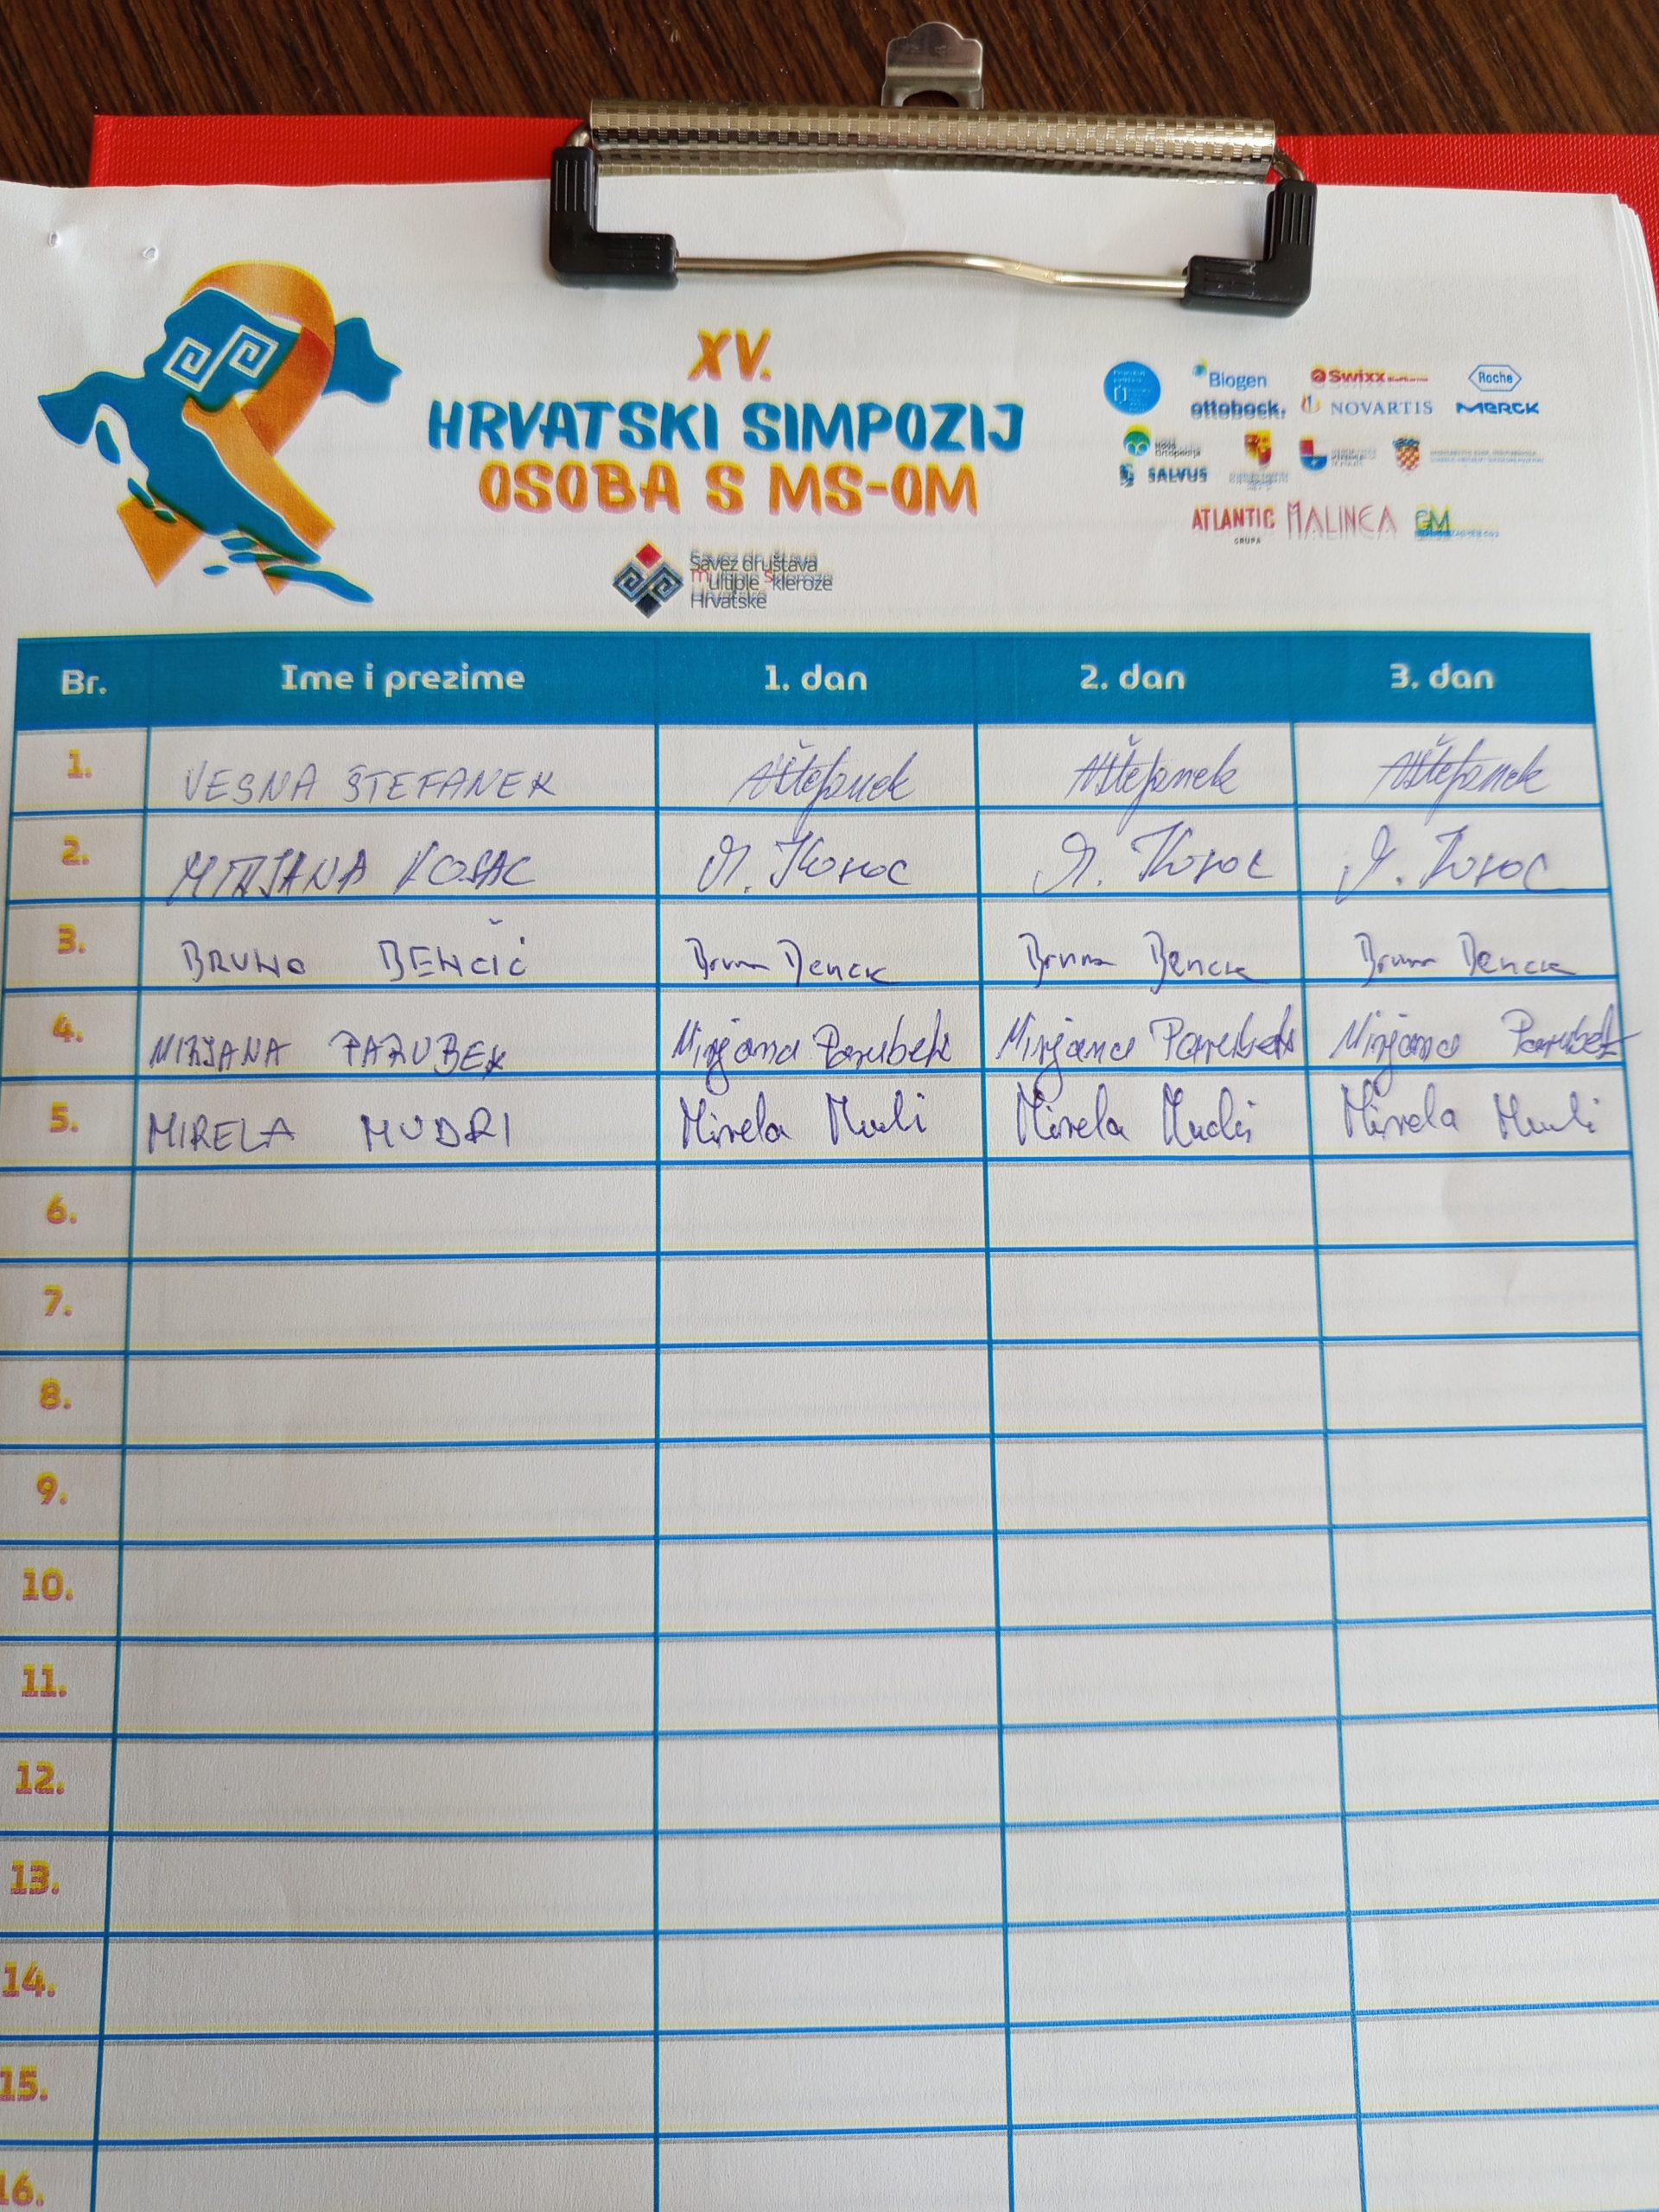 XV.
HRVATSKI SIMPOZIJ
OSOBA S MS-OM
Savez društava
multiple skleroze
Hrvatske
Biogen
Swixx
Roche
ottobock.
NOVARTIS
MERCK
SALVUS
ATLANTIC
GRUPA
MALINCA
Br. Ime i prezime 1. dan 2. dan 3. dan
1. VESNA ŠTEFANEK VŠtefanek VŠtefanek VŠtefanek
2. MIRJANA KOSAC M. Kosac M. Kosac M. Kosac
3. BRUNO BENČIĆ Bruno Benčić Bruno Benčić Bruno Benčić
4. MIRJANA PARUBEK Mirjana Parubek Mirjana Parubek Mirjana Parubek
5. MIRELA MUDRI Mirela Mudri Mirela Mudri Mirela Mudri
6.
7.
8.
9.
10.
11.
12.
13.
14.
15.
16.